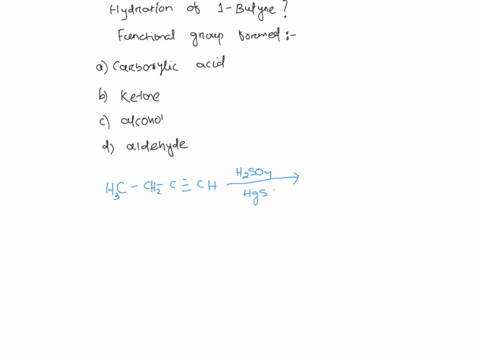 Hydration of 1-Butyne?
Functional group formed:-
a) Carboxylic acid
b) Ketone
c) alcohol
d) aldehyde
H₃C - CH₂ - C ≡ CH H₂SO₄
HgS